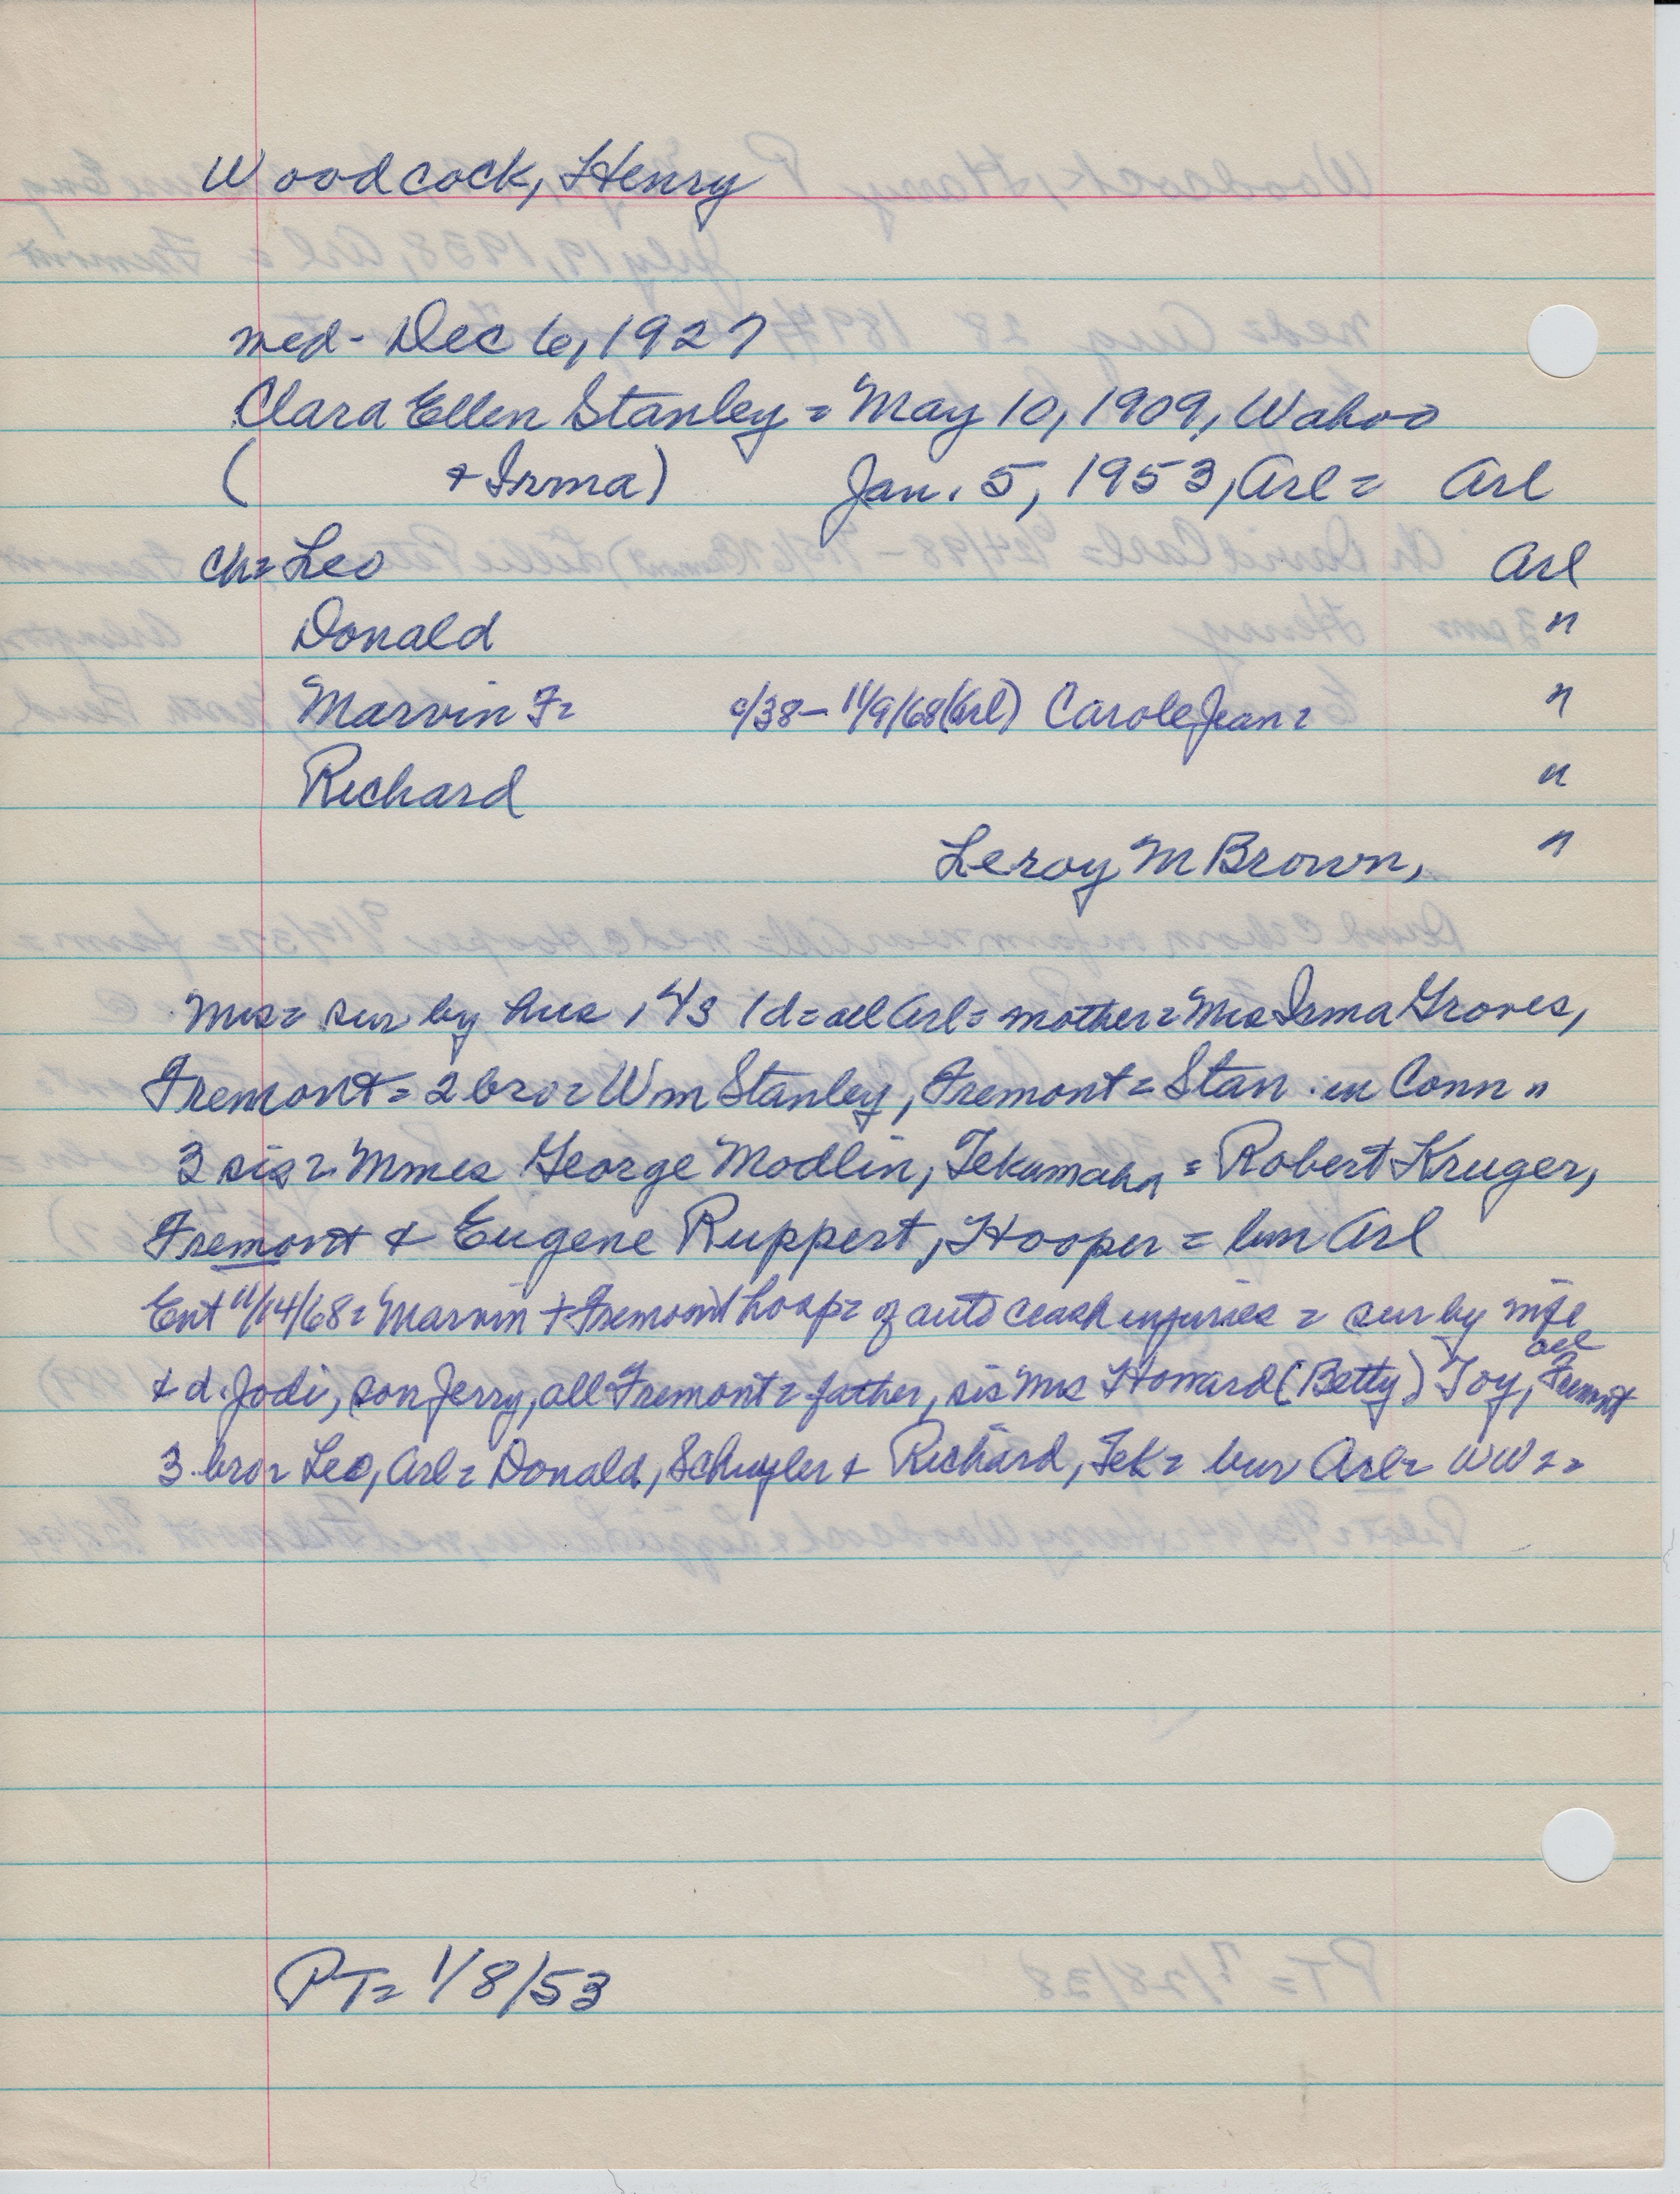 Woodcock, Henry
med - Dec 6, 1927
Clara Ellen Stanley = May 10, 1909, Wahoo
( & Irma) Jan. 5, 1953, Arl = Arl
Ch = Leo Arl
Donald "
Marvin F = c/38 - 11/9/68 (Arl) Carole Jean = "
Richard "
Leroy M Brown, "
Mrs = sur by hus, 4 s 1 d = all Arl = mother = Mrs Irma Groves,
Fremont = 2 bro = Wm Stanley, Fremont = Stan in Conn "
3 sis = Mmes George Modlin, Tekamaha = Robert Kruger,
Fremont & Eugene Ruppert, Hooper = bur Arl
Ent 11/14/68 = Marvin + Fremont hosp = of auto crash injuries = sur by wife
& d. Jodi, son Jerry, all Fremont = father, sis Mrs Howard (Betty) Toy, all Fremont
3 bro = Leo, Arl = Donald, Schuyler & Richard, Tek = bur Arl = WW 2 =
PT = 1/8/53